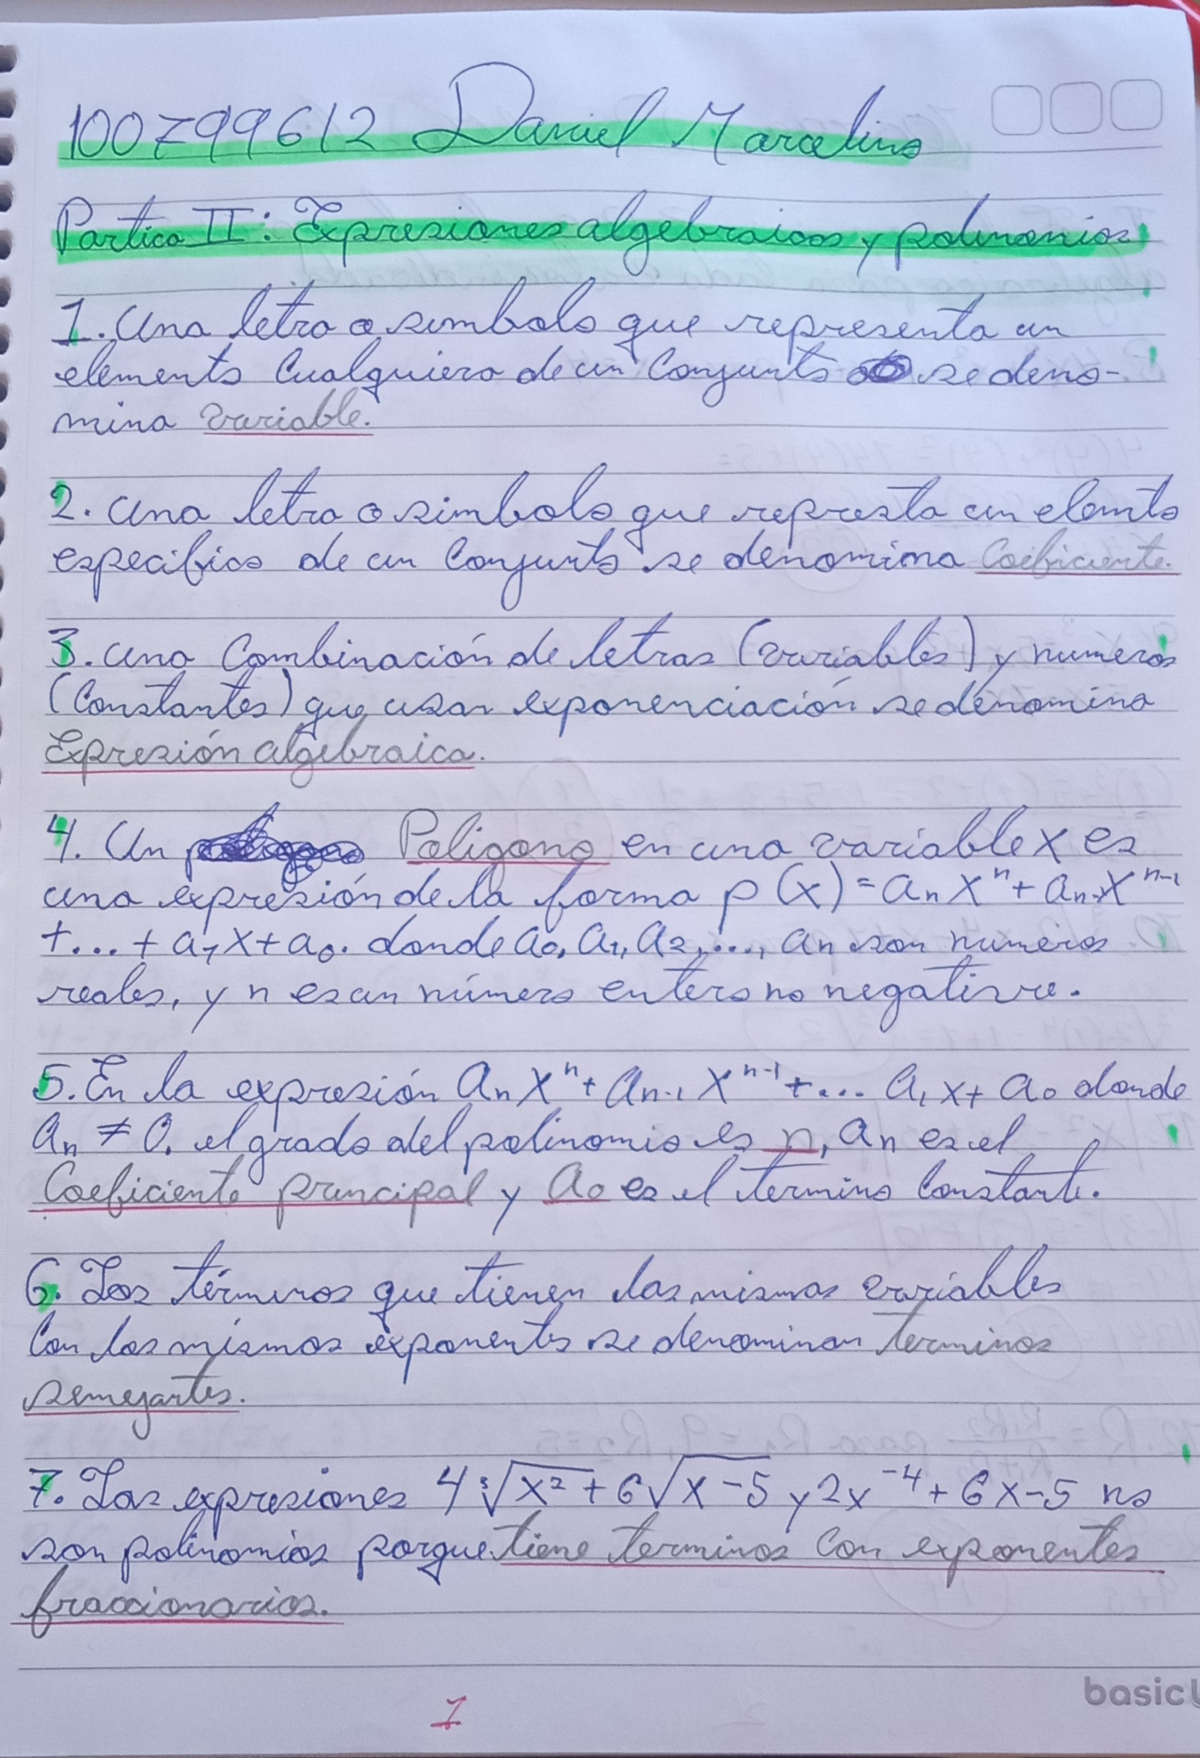 100799612 Daniel Marcelino
Partica II: Expresiones algebraicas y polinomios
1. Una letra o simbolo que representa un
elemento Cualquiera de un Conjunto se deno-
mina variable.
2. Una letra o simbolo que represta un elemto
especifico de un Conjunto se denomima Coeficiente.
3. Una Combinación de letras (variables) y numeros
(Constantes) que usan exponenciación se denomina
Expresión algebraica.
4. Un Poligono en una variable x es
una expresión de la forma p(x) = aₙxⁿ + aₙ₋₁xⁿ⁻¹
+... + a₁x + a₀. donde a₀, a₁, a₂, ..., aₙ son numeros
reales, y n es un número entero no negativo.
5. En la expresión aₙxⁿ + aₙ₋₁xⁿ⁻¹ + ... a₁x + a₀ donde
aₙ ≠ 0. el grado del polinomio es n, aₙ es el
Coeficiente principal y a₀ es el termino Constante.
6. Los términos que tienen las mismas variables
Con los mismos exponentes se denominan terminos
semejantes.
7. Las expresiones 4∛x² + 6√x-5 y 2x⁻⁴ + 6x-5 no
son polinomios porque tiene terminos Con exponentes
fraccionarios.
basic
1